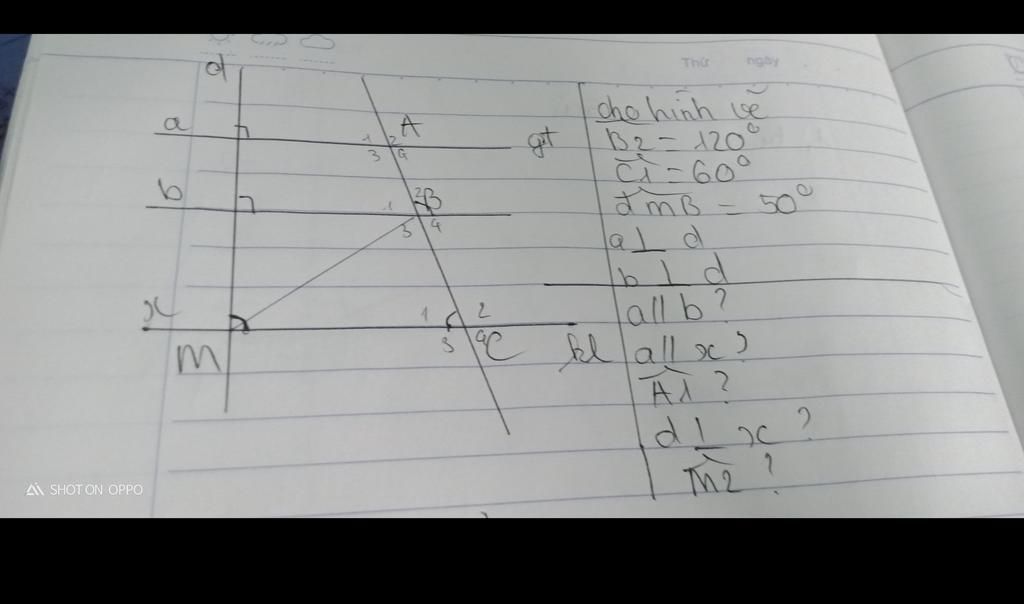 Thứ ngày
d
a
1 2 A
3 4
b
1 2 B
3 4
x
1 2
3 4 C
M
cho hình vẽ
gt B2 = 120°
C1 = 60°
dmB = 50°
a ⊥ d
b ⊥ d
a // b ?
kl a // x ?
A1 ?
d ⊥ x ?
m2 ?
SHOT ON OPPO